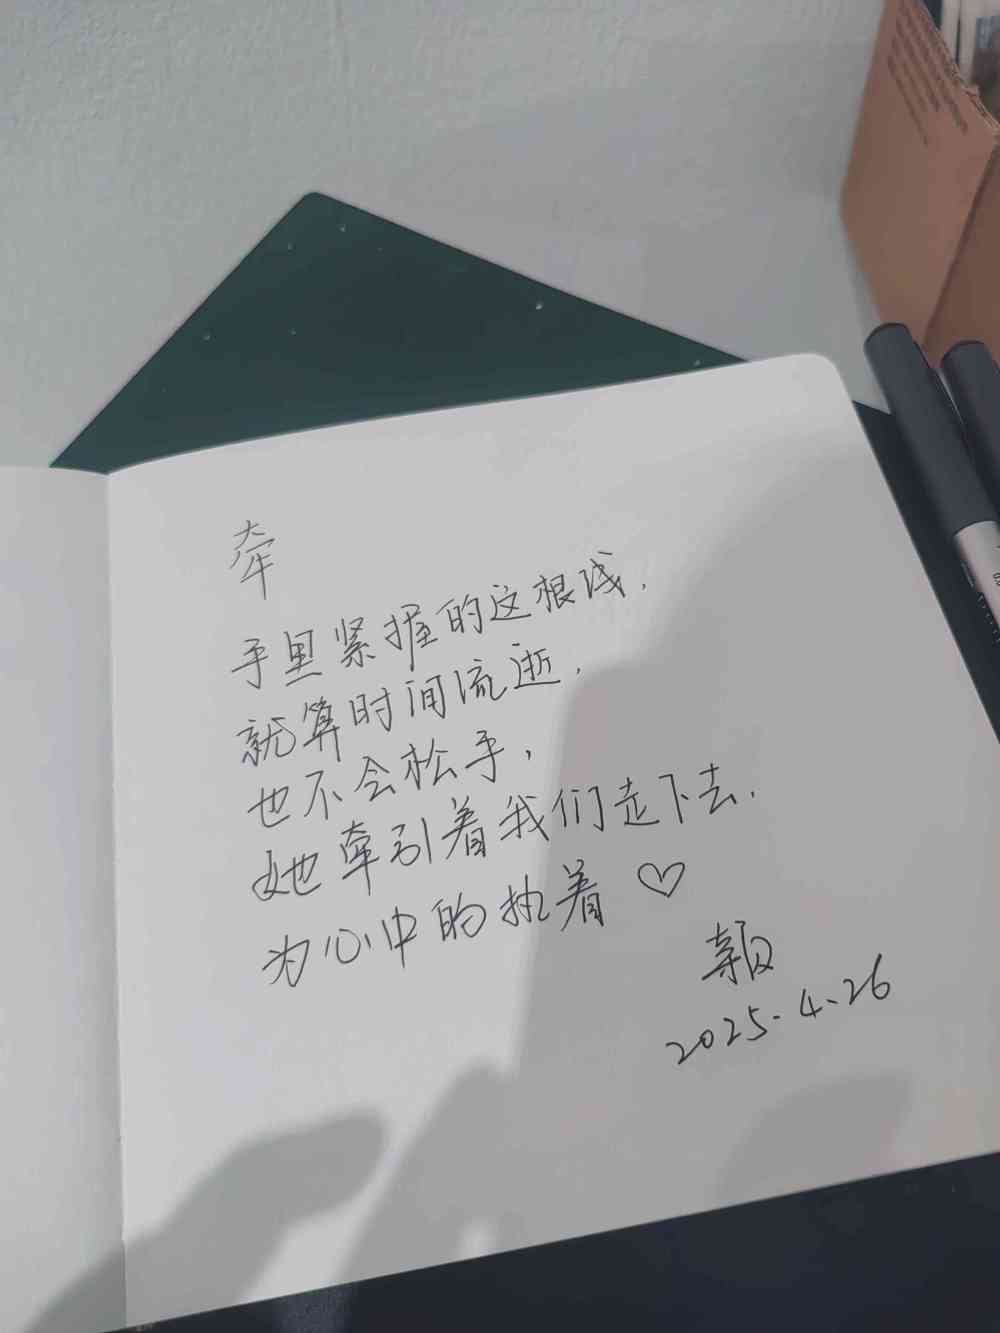 牵
手里紧握的这根线，
就算时间流逝，
也不会松手，
她牵引着我们走下去，
为心中的执着♡
2025.4.26